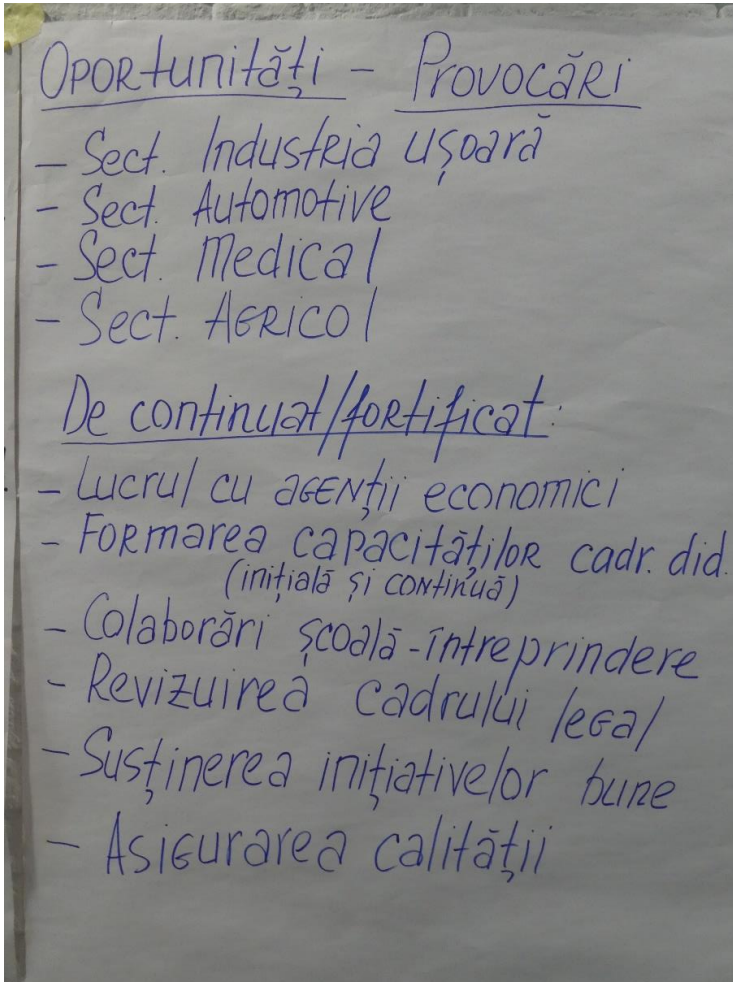 Oportunități - Provocări
- Sect. Industria ușoară
- Sect. Automotive
- Sect. Medical
- Sect. Agricol
De continuat/fortificat:
- Lucrul cu agenții economici
- Formarea capacităților cadr. did.
(inițială și continuă)
- Colaborări școală-întreprindere
- Revizuirea cadrului legal
- Susținerea inițiativelor bune
- Asigurarea calității